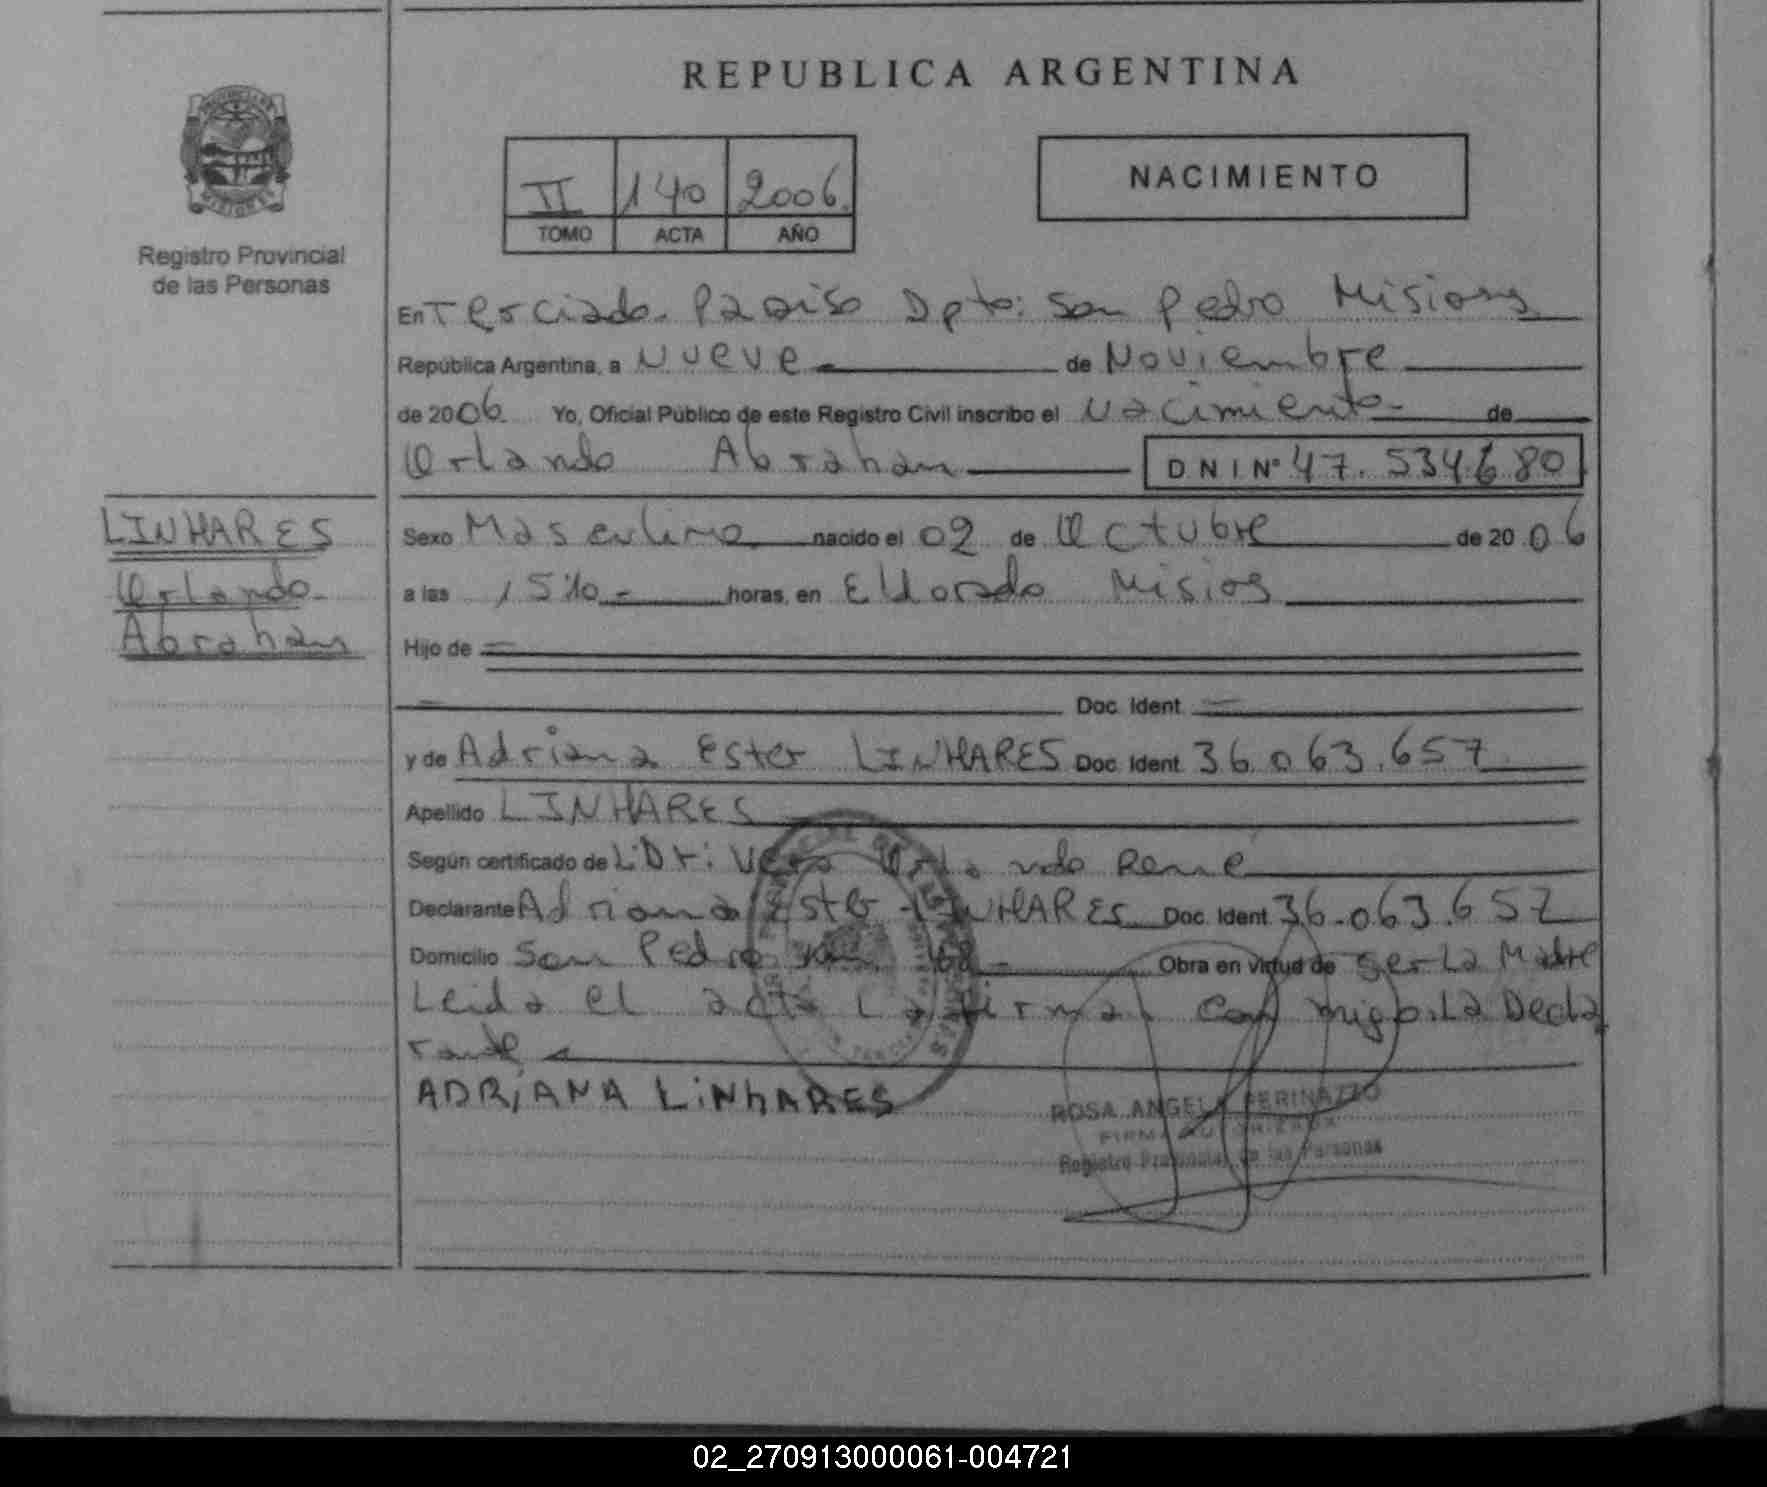 REPUBLICA ARGENTINA
NACIMIENTO
II 140 2006.
TOMO ACTA AÑO
Registro Provincial
de las Personas
En Terciado Paraiso Dpto: San Pedro Misiones
República Argentina, a Nueve de Noviembre
de 2006 Yo, Oficial Público de este Registro Civil inscribo el Nacimiento de
Orlando Abraham DNI Nº 47.534.680
LINHARES
Orlando
Abraham
Sexo Masculino nacido el 02 de Octubre de 2006
a las 15:10 horas, en Eldorado
Hijo de
Doc. Ident.
y de Adriana Ester LINHARES Doc. Ident. 36.063.657
Apellido LINHARES
Según certificado de Vera Orlando René
Declarante Adriana Ester LINHARES Doc. Ident. 36.063.657
Domicilio San Pedro Obra en virtud de ser La Madre
Leida el acta La firman con migo La Decla
rante
ADRiANA LiNhARES
ROSA ANGELA PERINAZZO
FIRMA AUTORIZADA
Registro Provincial de las Personas
02_270913000061-004721